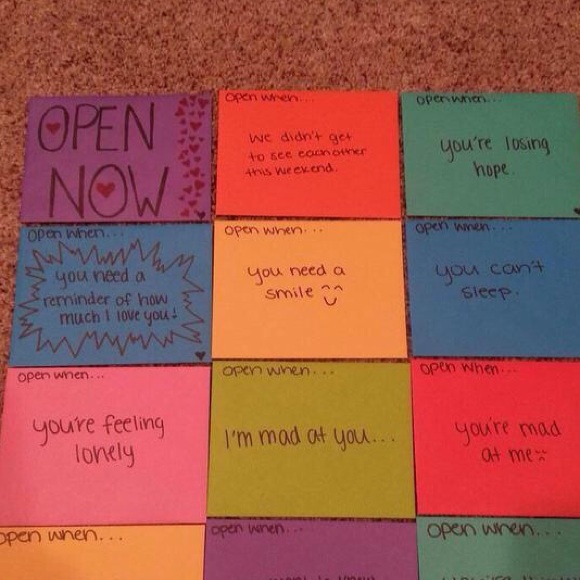 OPEN
NOW
open when...
we didn't get
to see eachother
this weekend.
open when...
you're losing
hope.
open when...
you need a
reminder of how
much I love you!
open when...
you need a
smile
open when...
you can't
sleep.
open when...
you're feeling
lonely
open when...
I'm mad at you...
open when...
you're mad
at me
open when...
open when...
open when...